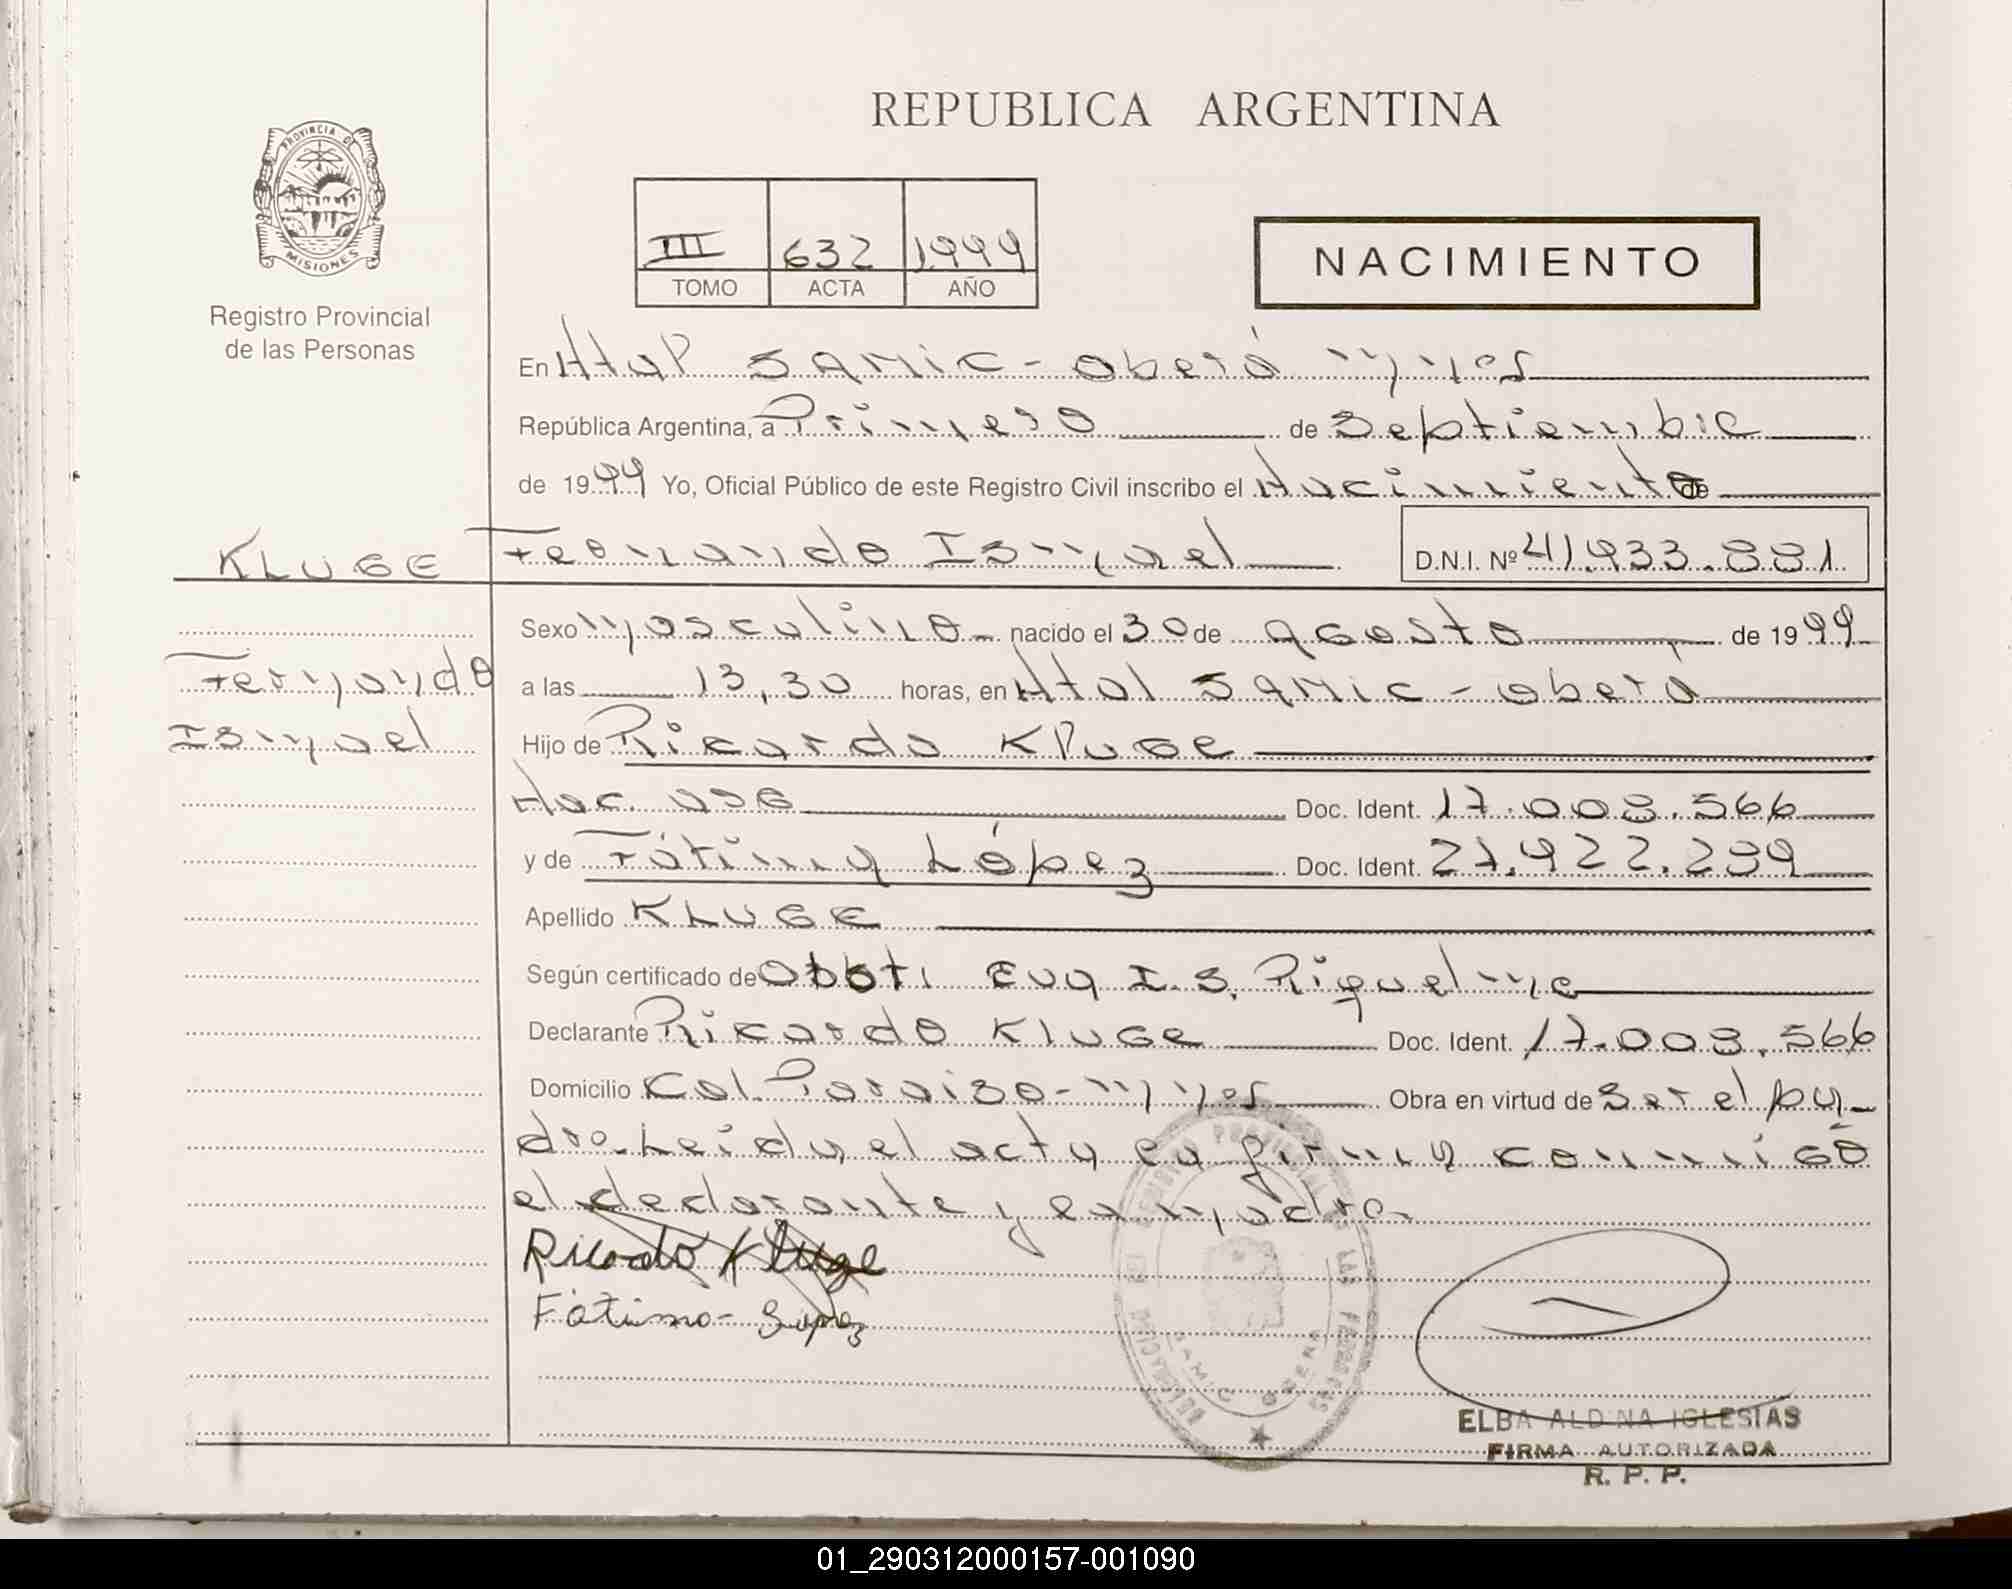 REPUBLICA ARGENTINA
PROVINCIA DE
MISIONES
Registro Provincial
de las Personas
III 632 1999
TOMO ACTA AÑO
NACIMIENTO
En Htal SAMIC - Oberá Mnes
República Argentina, a Primero de Septiembre
de 1999 Yo, Oficial Público de este Registro Civil inscribo el Nacimiento de
KLUGE Fernando Ismael D.N.I. Nº 41.933.881
Sexo Masculino nacido el 30 de Agosto de 1999
Fernando
a las 13,30 horas, en Htal SAMIC - Oberá
Ismael
Hijo de Ricardo Kluge
Nac. arg Doc. Ident. 17.008.566
y de Fátima López Doc. Ident. 27.922.289
Apellido KLUGE
Según certificado de Obst. Eva I. S. Riquelme
Declarante Ricardo Kluge Doc. Ident. 17.008.566
Domicilio Col. Paraiso - Mnes Obra en virtud de Ser el pa-
dre. Leida el acta la firma conmigo
el declarante y la madre.
Ricardo Kluge
Fátima Lopez
DELEGACION DEL REGISTRO PROVINCIAL DE LAS PERSONAS
SAMIC OBERA
ELBA ALDINA IGLESIAS
FIRMA AUTORIZADA
R. P. P.
01_290312000157-001090